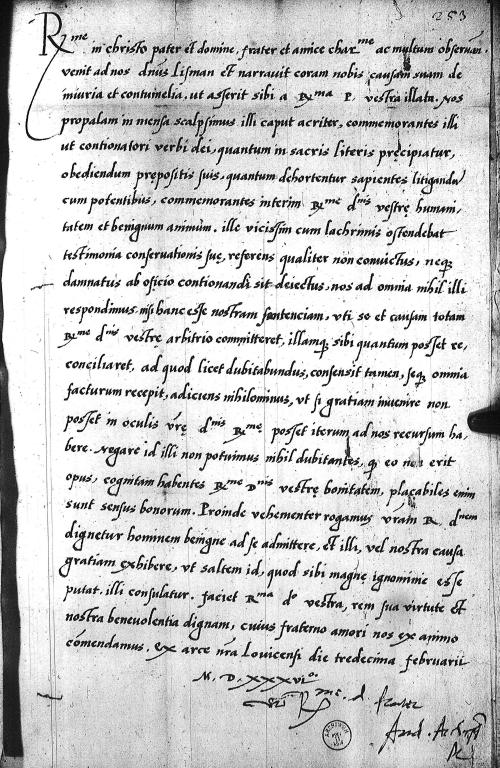 253
R^me in christo pater et domine, frater et amice char^me ac multum observan.
venit ad nos dnus Lisman et narravit coram nobis causam suam de
iniuria et contumelia, ut asserit sibi a R^ma P. vestra illata. Nos
propalam in mensa scalpsimus illi caput acriter, commemorantes illi
ut contionatori verbi dei, quantum in sacris literis pręcipiatur,
obediendum prępositis suis, quantum dehortentur sapientes litigandu
cum potentibus, commemorantes interim R^me d^nis vestrę humani,
tatem et benignum animum. ille vicissim cum lachrimis ostendebat
testimonia conservationis suę, referens qualiter non convictus, neq
damnatus ab oficio contionandi sit deiectus, nos ad omnia nihil illi
respondimus, nisi hanc esse nostram sententiam, uti se et causam totam
R^me d^nis vestrę arbitrio committeret, illamq sibi quantum posset re,
conciliaret, ad quod licet dubitabundus, consensit tamen, seq omnia
facturum recepit, adiiciens nihilominus, ut si gratiam invenire non
posset in oculis vrę d^nis R^me, posset iterum ad nos recursum ha,
bere. Negare id illi non potuimus nihil dubitantes, q eo non erit
opus, cognitam habentes R^me D^nis vestrę bonitatem, placabiles enim
sunt sensus bonorum. Proinde vehementer rogamus vram R. d^nem
dignetur hominem benigne ad se admittere, et illi, vel nostra causa
gratiam exhibere, ut saltem id, quod sibi magne ignominie esse
putat, illi consulatur. faciet R^ma d^o vestra, rem sua virtute et
nostra benevolentia dignam, cuius fraterno amori nos ex animo
comendamus. Ex arce nra Lovicensi die tredecima februarii
M. D. xxxvi^o.
R^me. d. frater
And. Ar